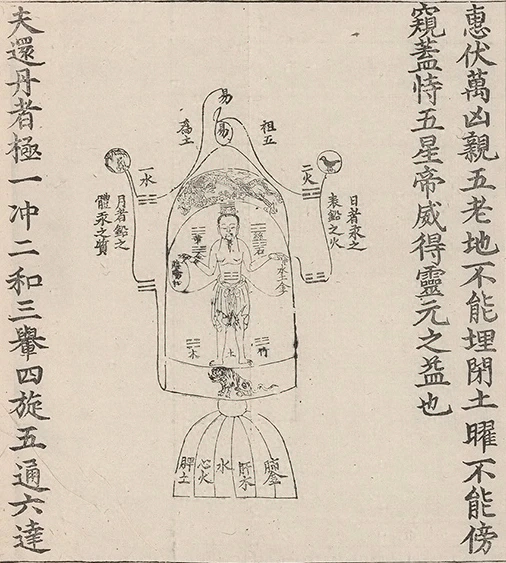 惠伏萬凶親五老地不能埋閉土曜不能傍
窺蓋恃五星帝威得靈元之益也
易
易
祖五
爲土
二火
一水
日者汞之
表鉛之火
月者鉛之
體汞之質
石
水土金
竹
土
木
肝木
水
心火
脾土
夫還丹者極一冲二和三轝四旋五通六達